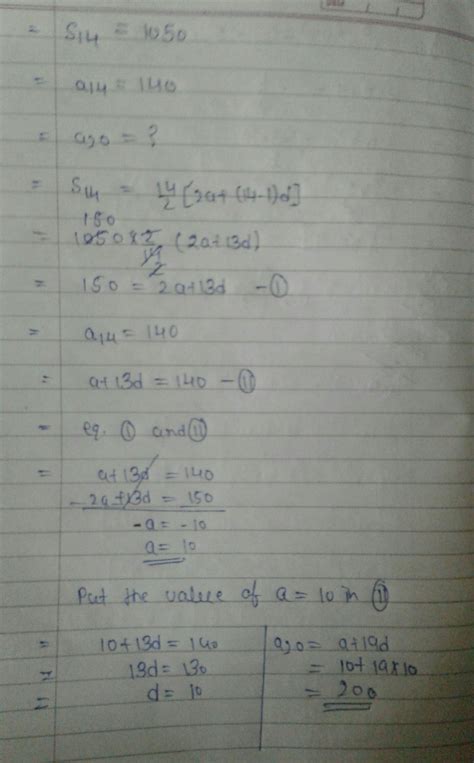 = S14 = 1050
= a14 = 140
= a20 = ?
= S14 = 14/2 [2a+(14-1)d]
150
= 1050×2/14 (2a+13d)
2
= 150 = 2a+13d - ①
= a14 = 140
= a+13d = 140 - ⑪
= eq. ① and ⑪
= a+13d = 140
- 2a+13d = 150
-a = -10
a = 10
Put the value of a = 10 in ⑪
= 10+13d = 140
= 13d = 130
= d = 10
a20 = a+19d
= 10+19×10
= 200